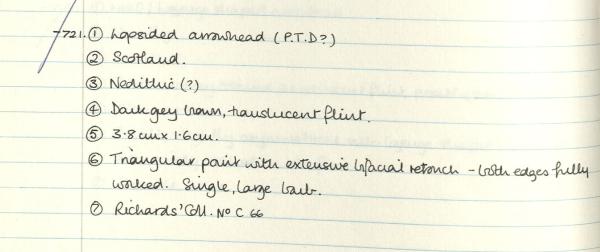 721. ① Lopsided arrowhead (P.T.D?)
② Scotland.
③ Neolithic (?)
④ Dark grey brown, translucent flint.
⑤ 3.8 cm x 1.6 cm.
⑥ Triangular point with extensive bifacial retouch - both edges fully
worked. Single, large barb.
⑦ Richards' Coll. No C 66